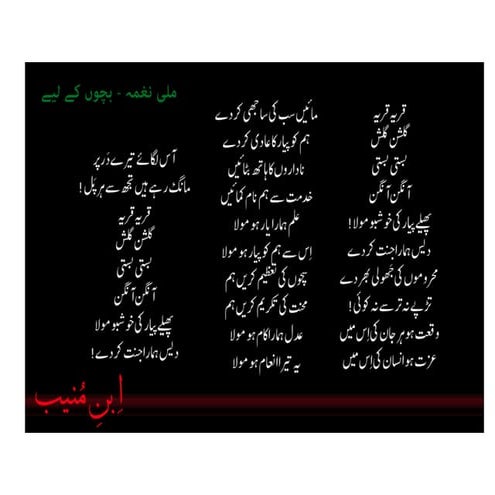 ملی نغمہ - بچوں کے لیے
قریہ قریہ
گلشن گلش
بستی بستی
آنگن آنگن
پھیلے پیار کی خوشبو مولا!
دیس ہمارا جنت کر دے
محروموں کی جھولی بھر دے
تڑپے نہ ترسے نہ کوئی!
وقعت ہو ہر جان کی اِس میں
عزت ہو انسان کی اِس میں
مائیں سب کی ساجھی کر دے
ہم کو پیار کا عادی کر دے
ناداروں کا ہاتھ بٹائیں
خدمت سے ہم نام کمائیں
علم ہمارا یار ہو مولا
اِس سے ہم کو پیار ہو مولا
سچوں کی تعظیم کریں ہم
محنت کی تکریم کریں ہم
عدل ہمارا کام ہو مولا
یہ تیرا انعام ہو مولا
آس لگائے تیرے دَر پر
مانگ رہے ہیں تجھ سے ہر پَل!
قریہ قریہ
گلشن گلش
بستی بستی
آنگن آنگن
پھیلے پیار کی خوشبو مولا
دیس ہمارا جنت کر دے!
اِبنِ مُنیب